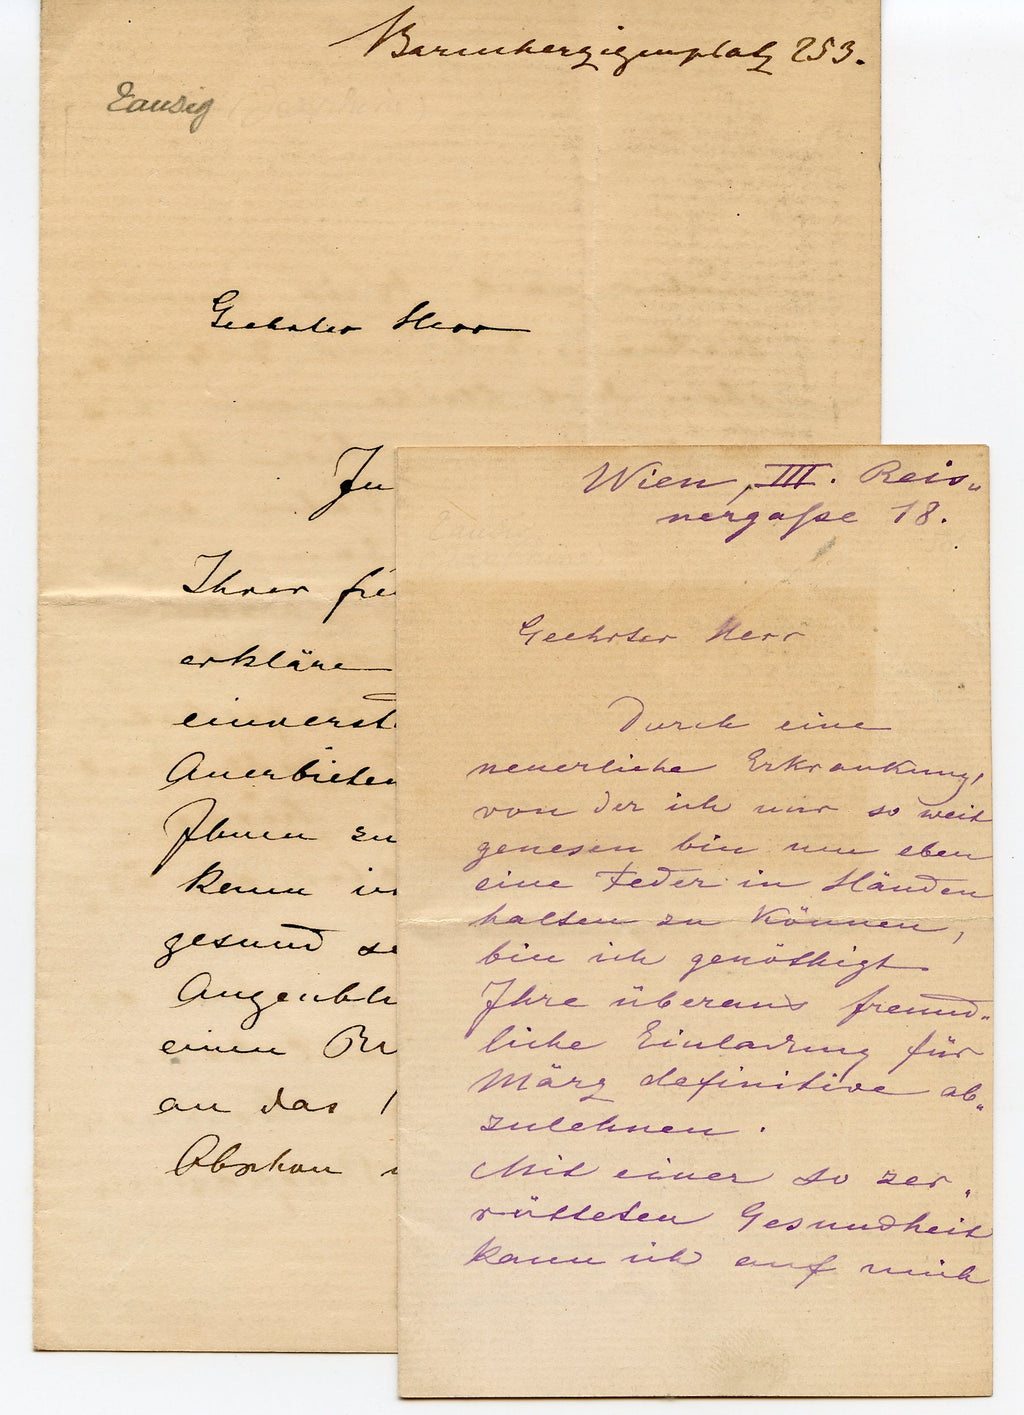 Barmherzigenplatz 253.
Geehrter Herr
In
Ihrer
erkläre
einverst
Anerbieten
Ihnen zu
kann
gesund
Augenbli
einen
an das
Wien, III. Reis„
nergaſse 18.
Geehrter Herr
Durch eine
neuerliche Erkrankung,
von der ich nur so weit
genesen bin um eben
eine Feder in Händen
halten zu können,
bin ich genöthigt
Ihre überaus freund„
liche Einladung für
März definitive ab„
zulehnen.
Mit einer so zer„
rütteten Gesundheit
kann ich auf mich